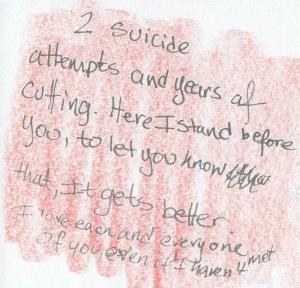 2 suicide
attempts and years of
cutting. Here I stand before
you, to let you know
that, It gets better.
I love each and everyone
of you, even if I haven't met